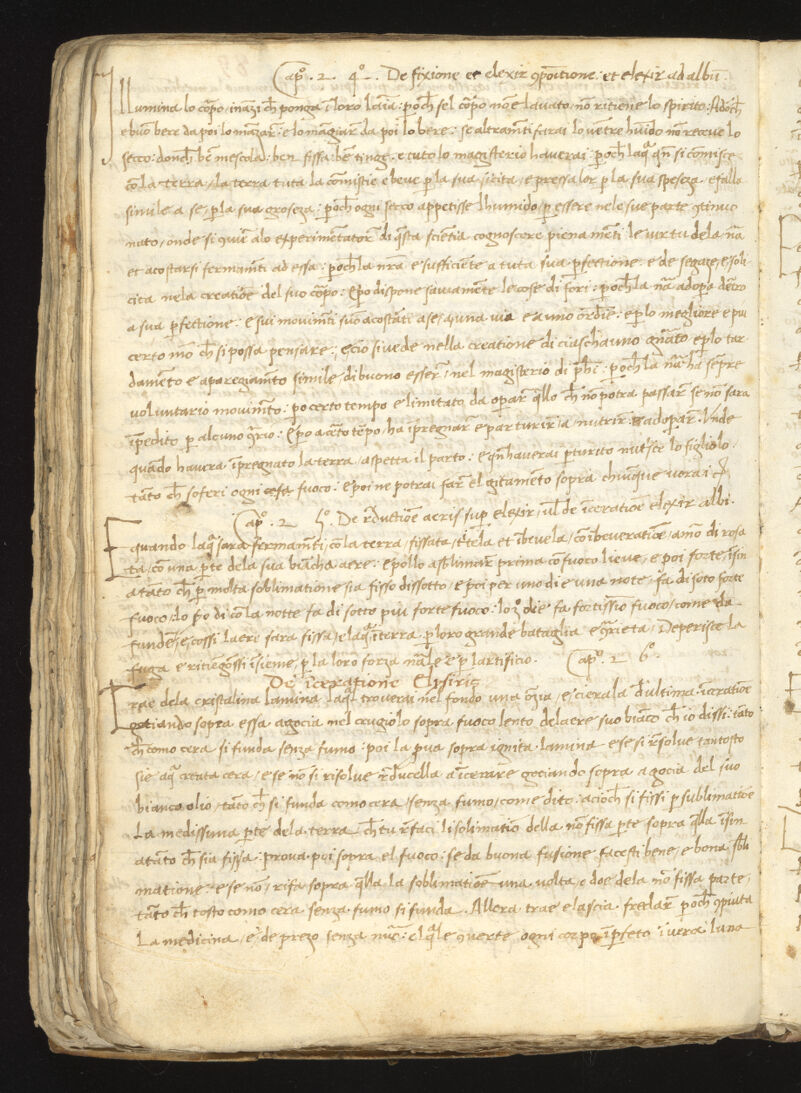 Capº . 2 . 4º . De fixione et elexir cpõitione : et elexir ad albũ .
Illumina lo cõpo, inãzi ch̃ ponga ĩ loro lãia : poch̃ sel cõpo nõ e lauato, nõ ritiene lo spirito : Adõch̃
e buõ bere da poi lo mãzar̃ : e lo mãgiar̃ da poi lo bere : se altramẽti farai lo uẽtre huĩdo nõ receue lo
secco : donch̃ bẽ mescola : ben fissa : bẽ tinge : e tuto lo magisterio hauerai : poch̃ laq̃ qñ si cõmisce
cõ la terra, la terra tuta la cõmistiõ e beue p la sua sicita, e pressa lor p la sua speseza, e fallo
simile a se, p la sua groseza : poch̃ ogni secco appetisse lhumido, p essere nele sue parte cõtinuo
nato, onde si cõuiẽ alo experimentator̃ di q̃sta sciẽtia cognoscere piena mẽti le uirtu dela nã
et acostarsi fermamẽti ad essa : poch̃ la nrã e sufficiẽte a tuta sua pfectione : e de segace, e soli
cita nela creatiõe del suo cõpo : Epo dispone sauiamẽte le cose di fori : poch̃ la nã adopa dẽtro
a sua pfectione : e sui mouimẽti suõ acostãti a se, ad una uia e a uno ordiñe : e p lo megliore e piu
certo mõ ch̃ si possa pensare : e cio si uede nella creatione di ciaschauno gñato e p lo tar
damẽto e aparegiamẽto simile di buono esser̃, nel magisterio di phĩ : poch̃ la nã ha sẽpre
voluntario mouimẽto : po certo tempo e limitato da opar̃ q̃llo ch̃ nõ potra passar̃ se nõ sara
ĩpedito p alcuno cõrio : Epo a certo tẽpo, ha ĩpregnar̃ e parturir̃, a nutrir̃ adopar̃ : Vnde
quãdo hauera ĩpregnato la terra, aspetta il parto : e qñ hauerai pturito nutrisce lo figliolo :
tãto ch̃ soferi ogni fuoco : e poi ne potrai far̃ el gitamẽto sopra chiunque uorai
Capº . 2 5º . De r̃ductiõe aeris sup elexir, uł de ĩceratiõe elexir albi .
E quando laq̃ sara fermamẽti cõ la terra, fissata, e ĩbeuela, cõ ĩbeueratiõe, a mõ di rosa
ta, cõ una pte dela sua biãcha aere : e pollo a sblimar̃ prima cõ fuoco lieue, e poi forte, ĩsin
a tãto ch̃ p molta soblimatione sia fisso dissotto, e poi per uno di e una note, fa di soto forte
fuoco, lo di cõ la notte fa di sotto piu forte fuoco : lo 3º die fa fortissiõ fuoco, come da
fundẽr̃, e cossi laere sara fissa, e laq̃, ĩ terra, p loro grande bataglia e cõrieta, Deperisce la
fuga e ritiengossi ĩsieme, p la loro forza nãle e p lartificio . Capº . 2 6º .
De ĩceratione Elisiris
Trae dela cristalina lamina laq̃l trouerai nel fondo una õza, e cierala dultima ĩceratiõe
gociando sopra essa agocia nel crugiolo sopra fuoco lento delaere suo biãco ch̃ io dissi : tãto
ch̃ como cera si funda senza fumo : poi la pua sopra ignita lamina, e se si r̃solue tantosto
sie aq̃ cera, e se nõ si risolue r̃ducella a ĩcerar̃e gociando sopra agocia del suo
bianco olio, tãto ch̃ si funda como cera, senza fumo, come dito : acioch̃ si fissi p sublimatiõe
La medissima pte dela terra, ch̃ tu r̃faci li solimatio della nõ fissa pte sopra q̃lla ĩsin
atãto ch̃ sia fissa : proua poi sopra el fuoco : se da buona fusione facesti bene, e bona sbli
matione : e se nõ, rifa sopra q̃lla la soblimatiõ una uolta e doe dela nõ fissa parte,
tãto ch̃ tosto como cera senza fumo si funda . Allora trae e lascia fredar̃ poch̃ cõpiuta
La medicina, e de prezo senza nũo : el q̃le cõuerte, ogni corpo ĩpfeto ĩ uera luna